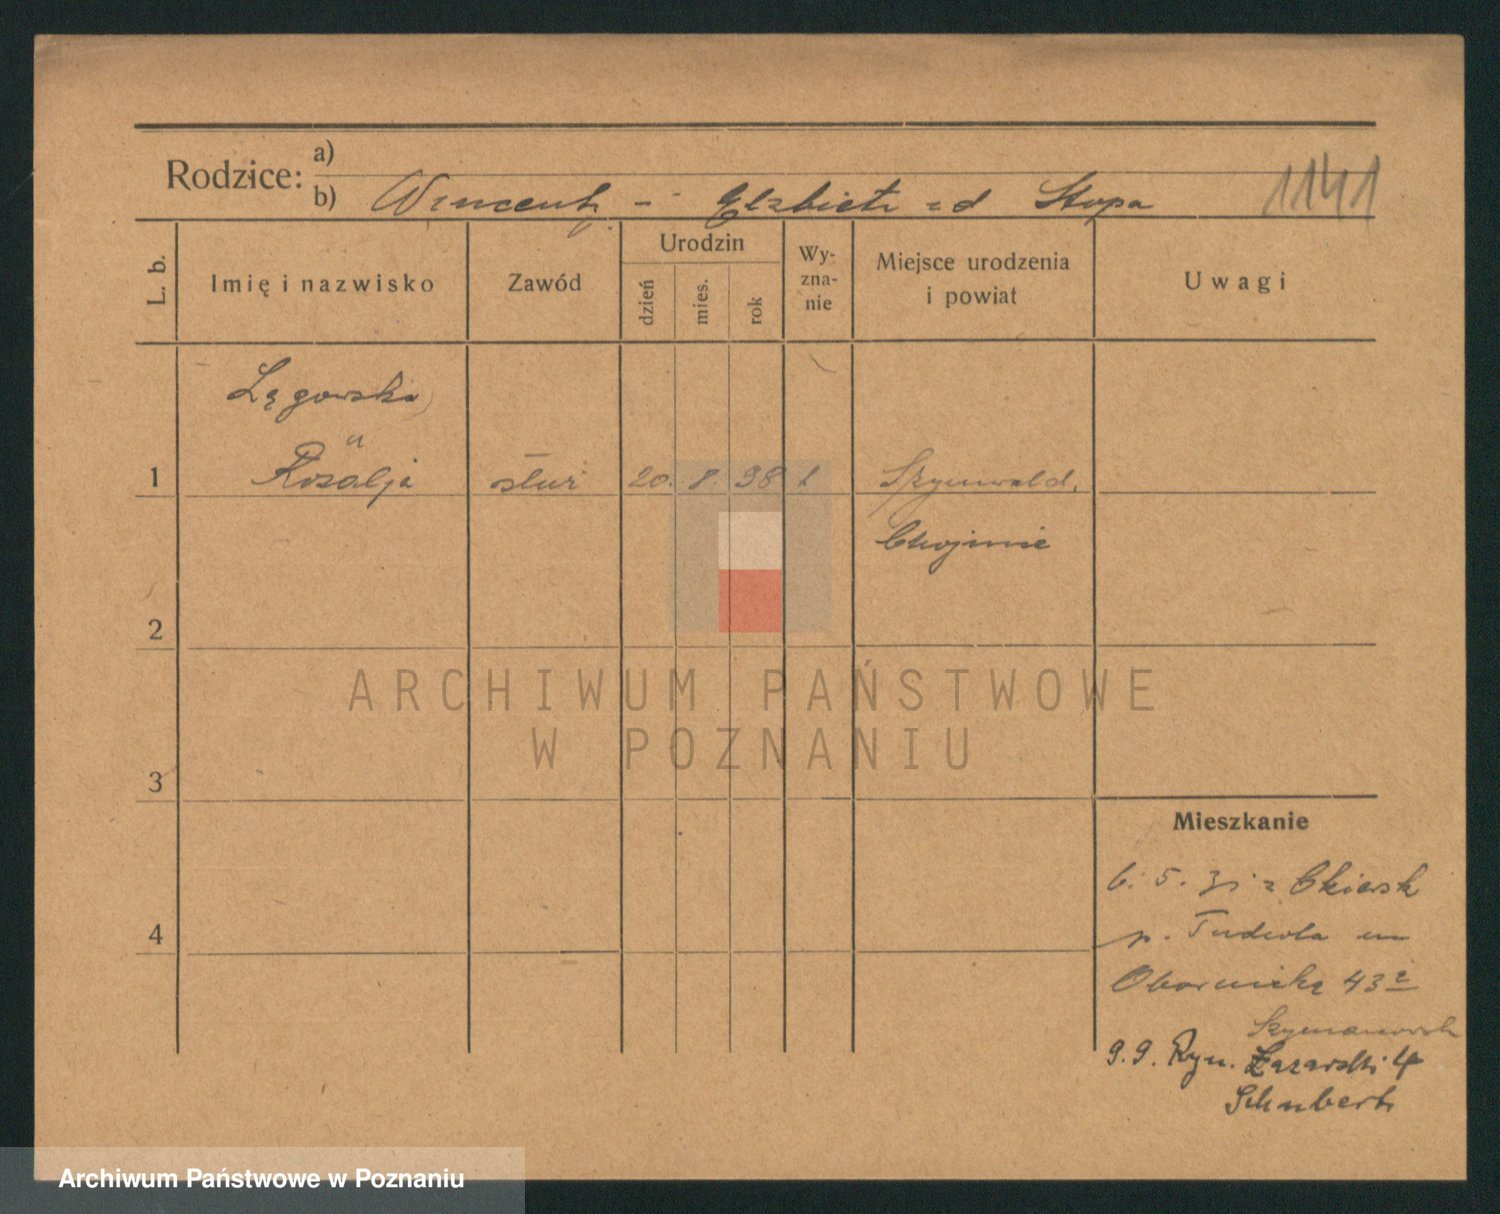 Rodzice: a)
b) Wincenty - Elżbieta zd Stopa
1141
L. b.
Imię i nazwisko
Zawód
Urodzin
dzień
mies.
rok
Wy-
zna-
nie
Miejsce urodzenia
i powiat
Uwagi
Łęgowska
1 Rozalja służ 20. 8. 98 k Szynwald,
Chojnice
2
3
4
ARCHIWUM PAŃSTWOWE
W POZNANIU
Mieszkanie
6. 5. 31 z
p.
Obornicka 43
Szymanowsk
9.9. Ryn. Łazarski 4
Schubert
Archiwum Państwowe w Poznaniu